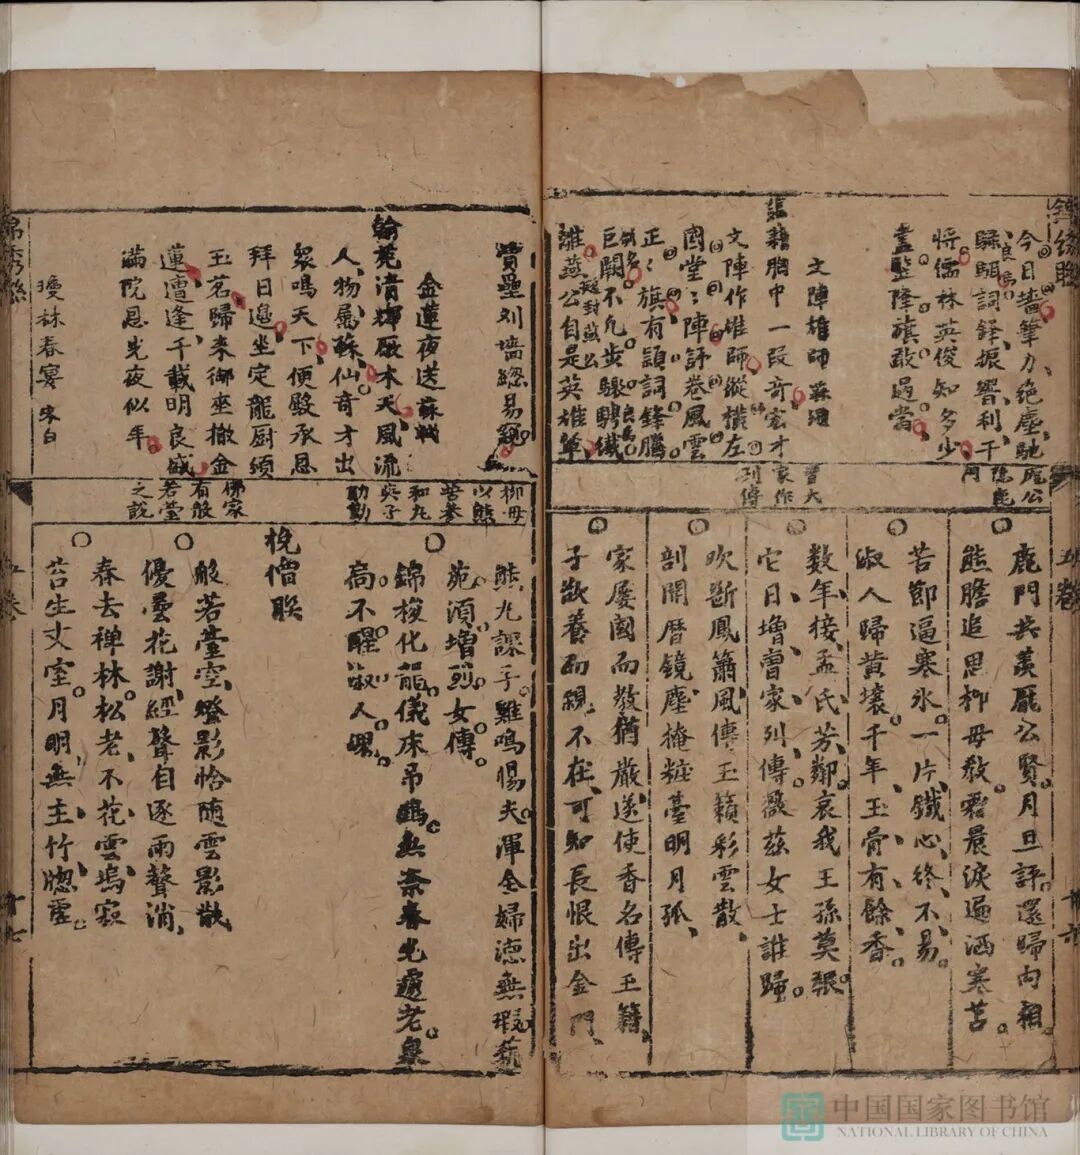 今日墻筆力絶塵馳
騄駬詞鋒振響利干
將儒林英俊知多少
盡監降旗敢過當
文陣雄師蘇頲
胸中一段奇宏才
文陣作雄師縱橫左
國堂堂陣評卷風雲
正正旗有韻詞鋒騰
巨闕不凡步驟騁鐵
誰燕公自是英雄
龐公
隱鹿
門
曹大
家作
列傳
鹿門共羡龐公賢月旦評還歸向
熊膽追思柳母教霜晨淚遍洒寒苫
苦節逼寒氷一片鐵心終不易
淑人歸黄壤千年玉骨有餘香
数年接孟氏芳鄰哀我王孫莫報
它日增曹家列傳薇兹女士誰歸
吹斷鳳簫風傳玉籟彩雲散
剖開暦鏡塵掩粧臺明月孤
家慶國而教猶嚴遂使香名傳玉籍
子欲養而親不在可知長恨出金門
壘别墻緦易
金蓮夜送蘇軾
翰苑清輝厰木天風流
人物屬蘇仙奇才出
衆鳴天下便殿承恩
拜日邉坐定龍厨頒
玉茗歸来御座撤金
蓮遭逢千載明良盛
满院恩光夜似年
瓊林春宴 宋白
柳母
以熊
苦参
和丸
與子
助勤
佛家
有般
若䑓
之説
熊丸課子雞鳴惕夫渾全婦德無瑕
苑湏增烈女傳
錦梭化龍儀床吊鶴無奈春光邁老泉
高不醒淑人
挽僧联
般若臺空燈影恰随雲影散
優曇花謝經聲自逐雨聲消
春去禅林松老不花雲塢寂
苔生丈室月明無主竹牎虚
卷
十六
十七
中国国家图书馆
NATIONAL LIBRARY OF CHINA